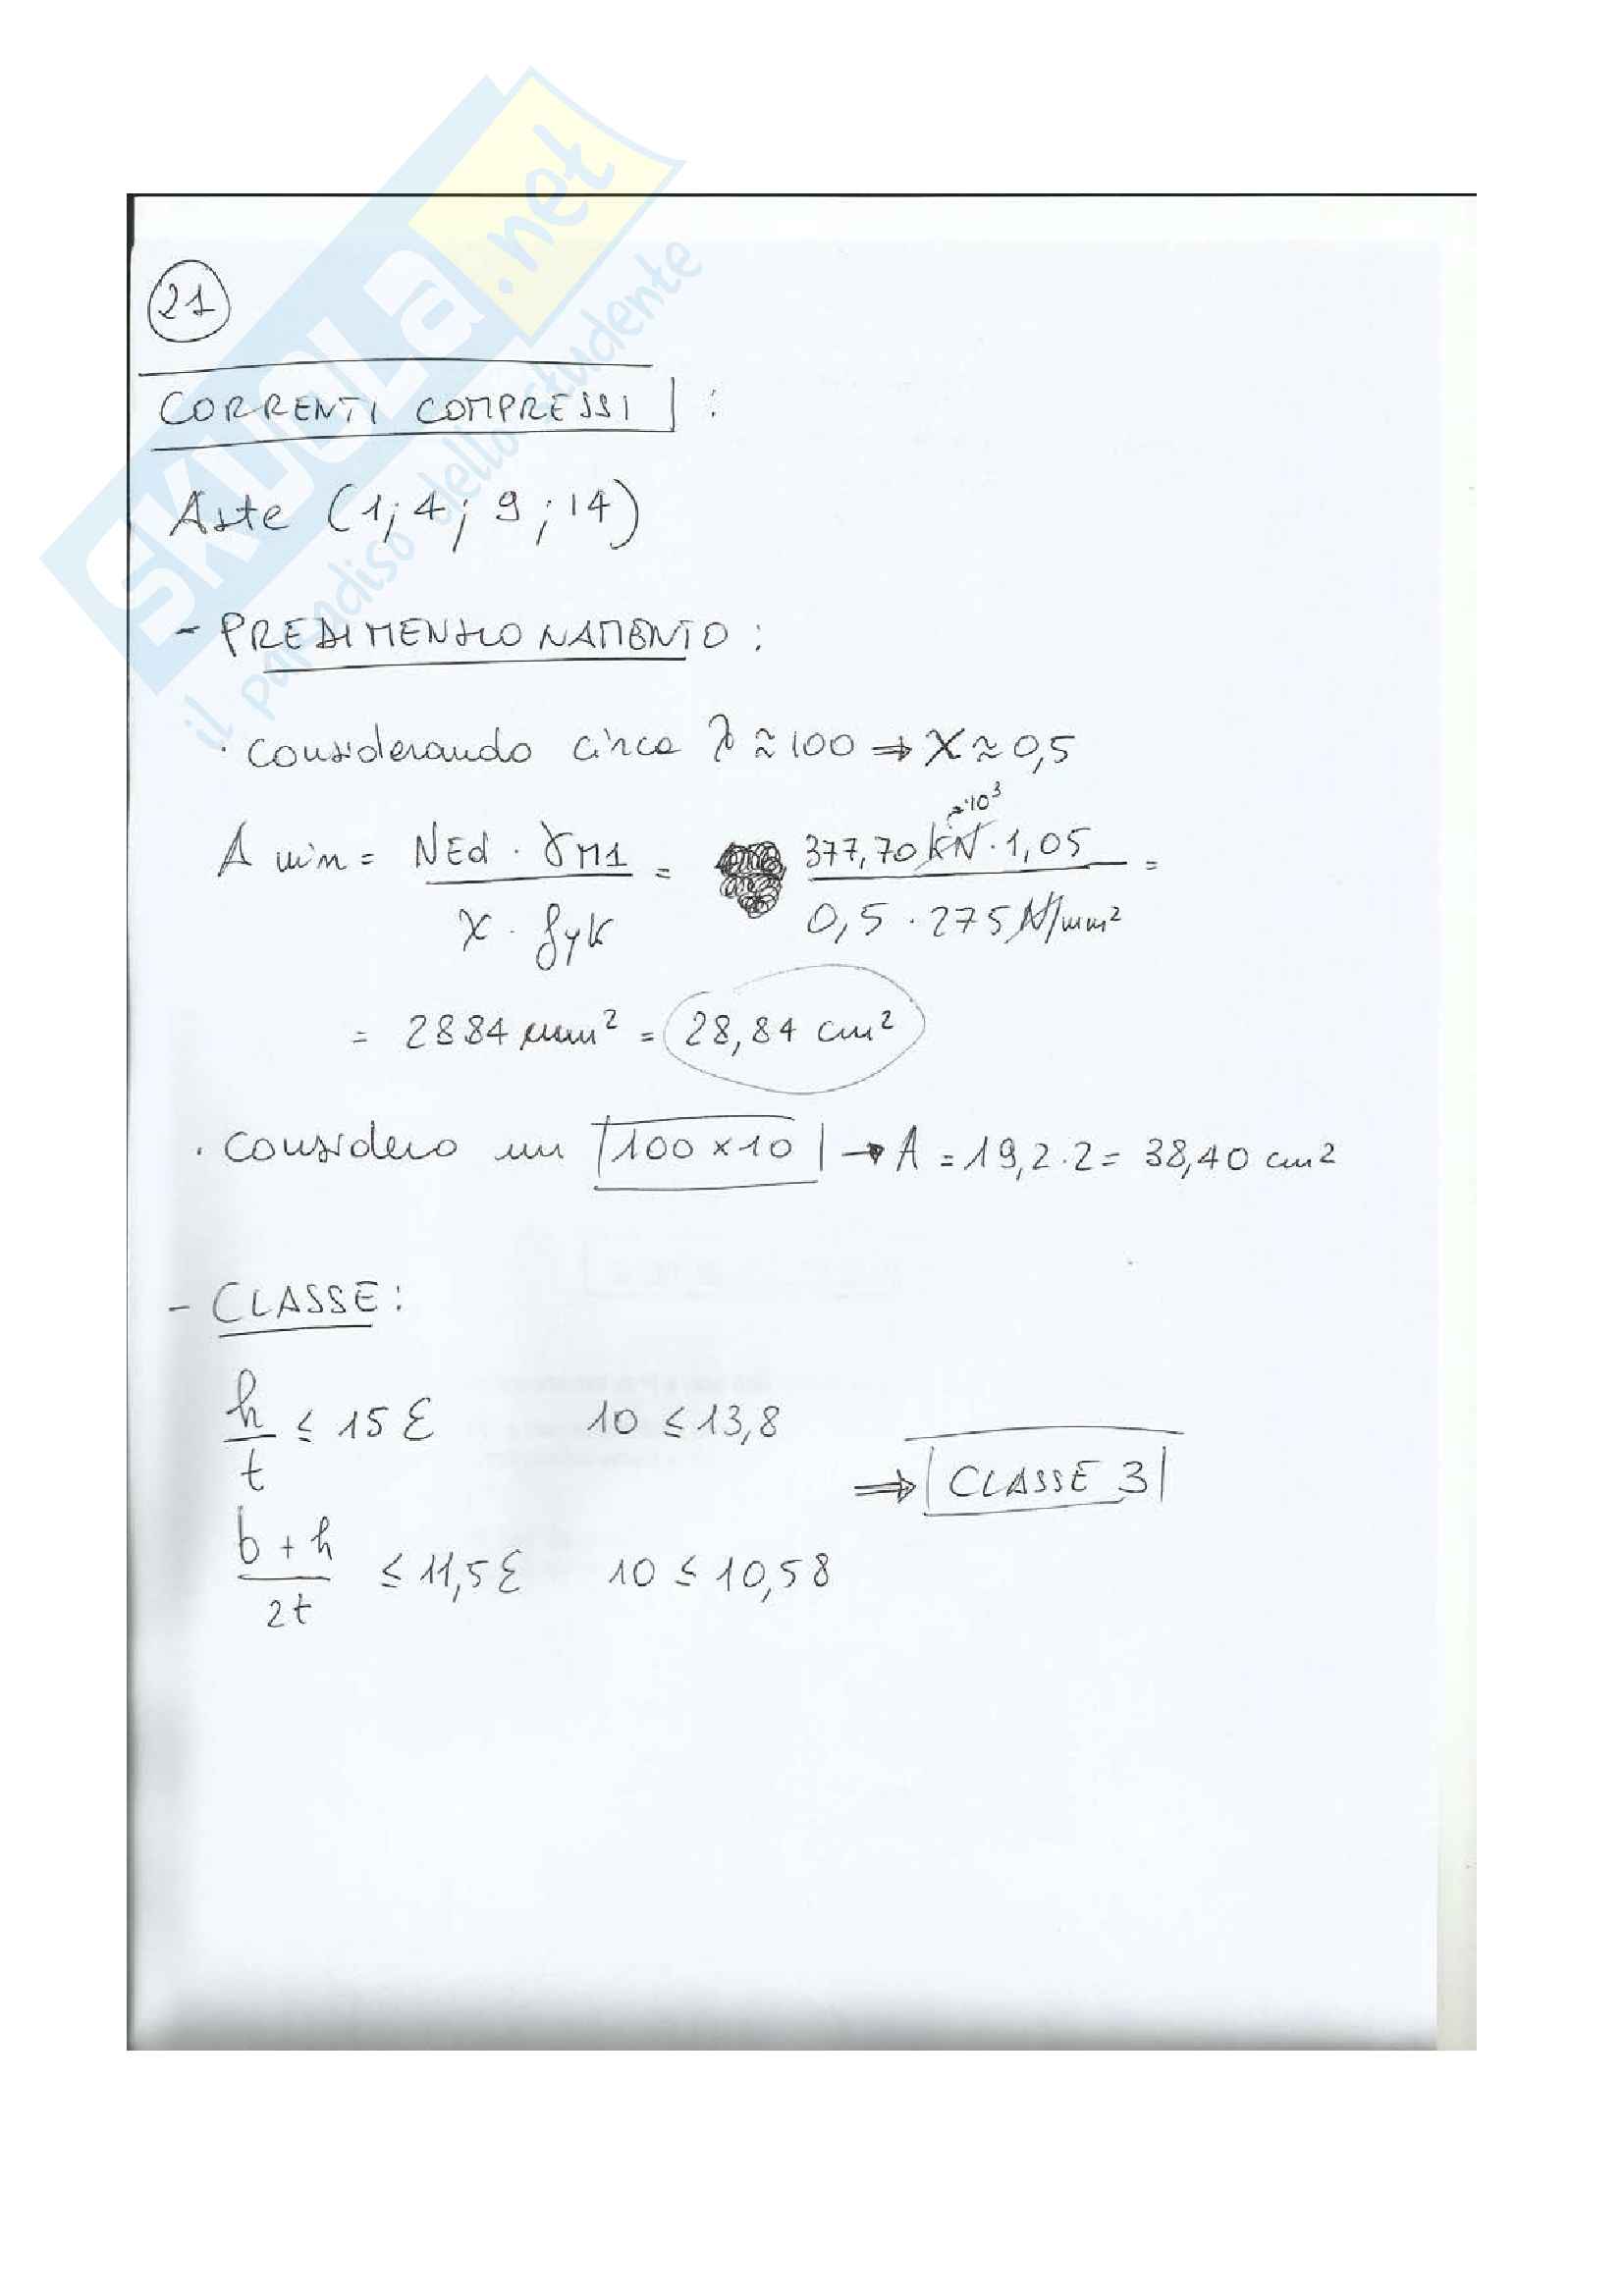 SKUOLA.net
il paradiso dello studente
21
CORRENTI COMPRESSI :
Aste (1; 4; 9; 14)
- PREDIMENSIONAMENTO :
· considerando circa λ ≈ 100 ⇒ χ ≈ 0,5
A min = NEd · γM1 / χ · fyk = 377,70 kN · 10³ · 1,05 / 0,5 · 275 N/mm² =
= 2884 mm² = 28,84 cm²
· considero un 100 × 10 → A = 19,2 · 2 = 38,40 cm²
- CLASSE :
h / t ≤ 15 ε 10 ≤ 13,8
⇒ CLASSE 3
b + h / 2t ≤ 11,5 ε 10 ≤ 10,58